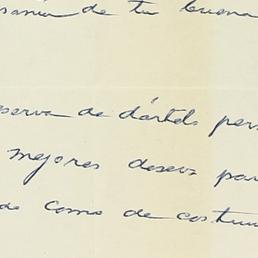 de tu buena
reserva de dártelo pers
mejores deseos par
do como de costum